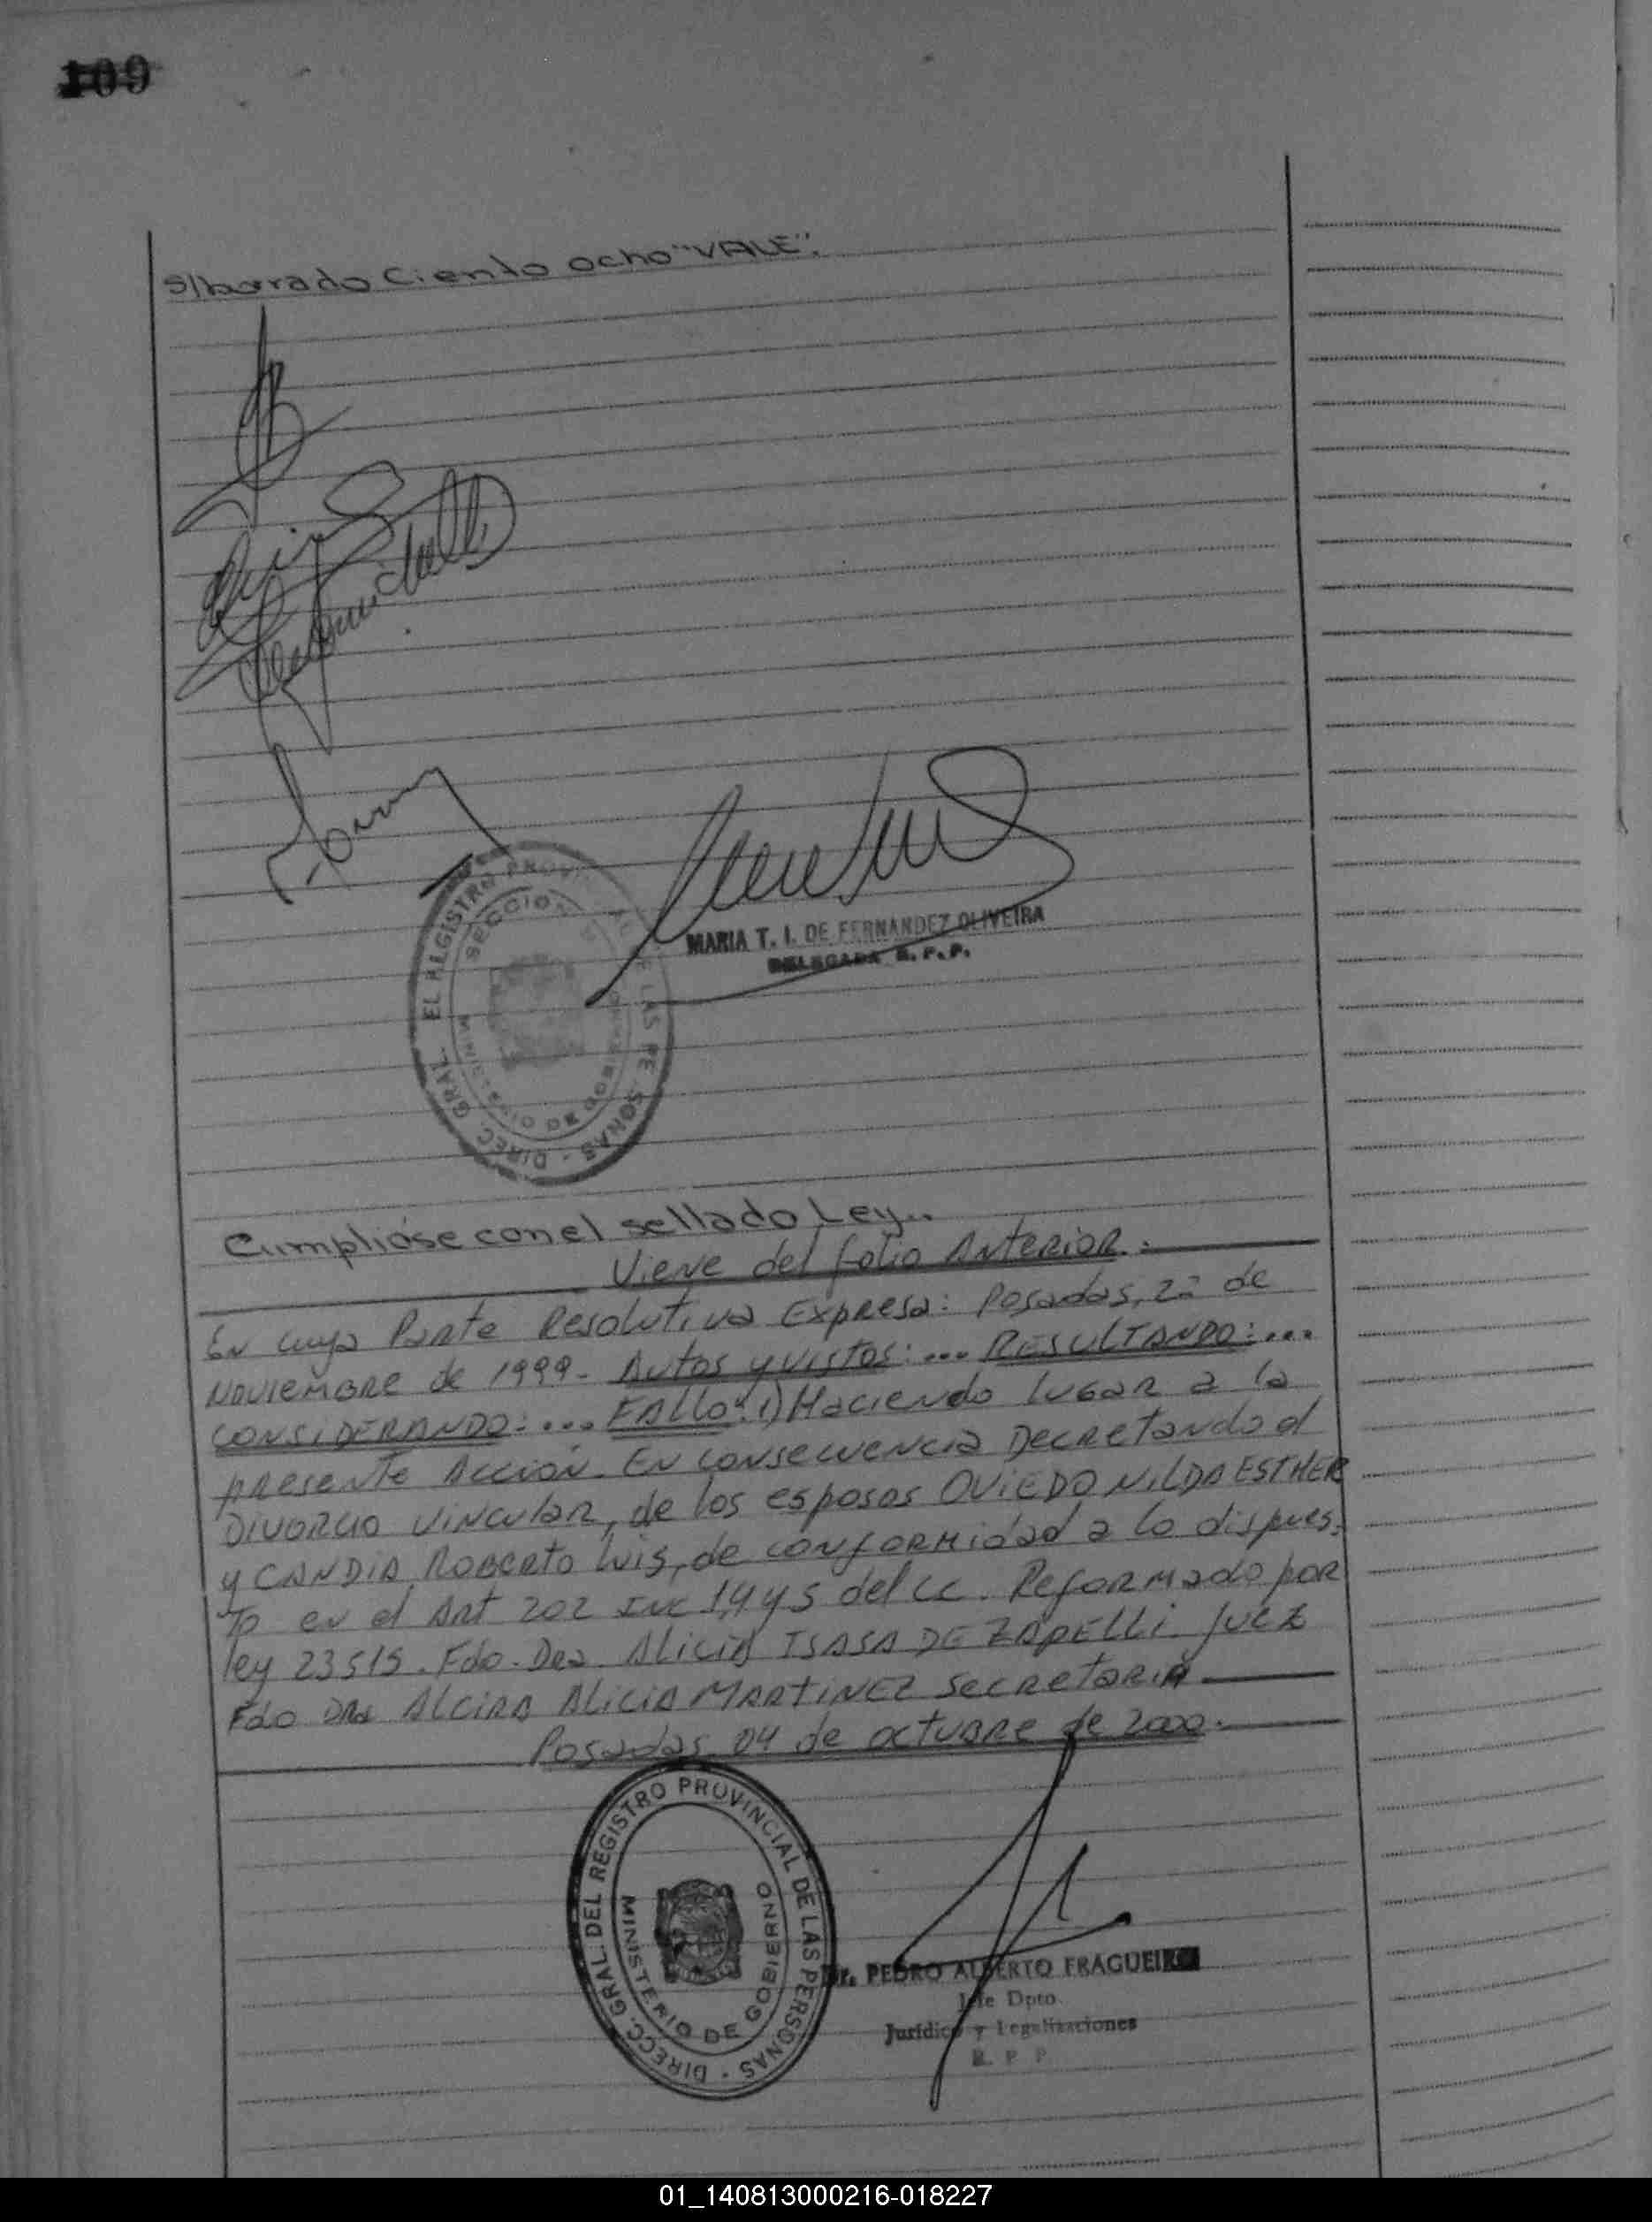 109
S/borrado Ciento ocho "VALE".
MARIA T. I. DE FERNANDEZ OLIVEIRA
DELEGADA R. P. P.
DIREC. GRAL. EL REGISTRO PROVIN LAS PE SONAS
SECCION
Cumplióse con el sellado Ley..
Viene del folio Anterior.
En cuya Parte Resolutiva Expresa: Posadas, 22 de
Noviembre de 1999. Autos y vistos: ... RESULTANDO: ...
CONSIDERANDO: ... FALLO: 1) Haciendo lugar a la
presente Acción. En consecuencia Decretando el
Divorcio Vincular, de los esposos OVIEDO NILDA ESTHER
y CANDIA Roberto Luis, de conformidad a lo dispues-
to en el Art 202 INC 1,4 y 5 del CC. Reformado por
ley 23515. Fdo. Dra. Alicia ISASA DE ZAPELLI. Juez
Fdo Dra Alcira Alicia MARTINEZ Secretaria
Posadas 04 de octubre de 2000.
DIRECC. GRAL. DEL REGISTRO PROVINCIAL DE LAS PERSONAS
MINISTERIO DE GOBIERNO
Dr. PEDRO ALBERTO FRAGUEIRO
Jefe Dpto.
Jurídico y Legalizaciones
R. P. P.
01_140813000216-018227